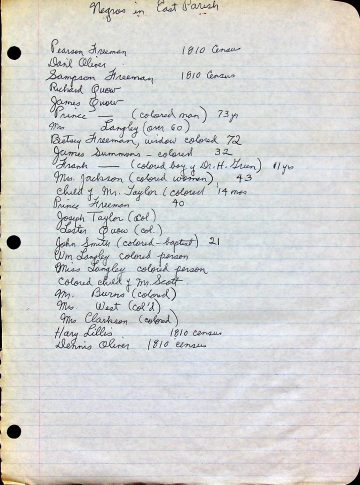 Negros in East Parish
Pearson Freeman 1810 Census
Daril Oliver
Sampson Freeman 1810 Census
Richard Quow
James Quow
Prince — (colored man) 73 yr
Mrs Langley (over 60)
Betsey Freeman, widow colored 72
James Summons - colored 32
Frank — (colored boy of Dr. H. Green) 11 yrs
Mrs. Jackson (colored woman) 43
child of Mr. Taylor (colored) 14 mos
Prince Freeman 40
Joseph Taylor (col)
Lester Quow (col.)
John Smith (colored-baptist) 21
Wm Langley colored person
Miss Langley colored person
colored child of Mr. Scott
Mr. Burns (colored)
Mrs. West (col'd)
Mrs Clarkson (colored)
Harry Lillis 1810 census
Dennis Oliver 1810 census